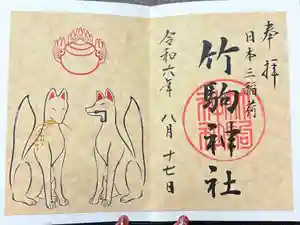 奉拝
日本三稲荷
竹駒神社
令和六年 八月十七日